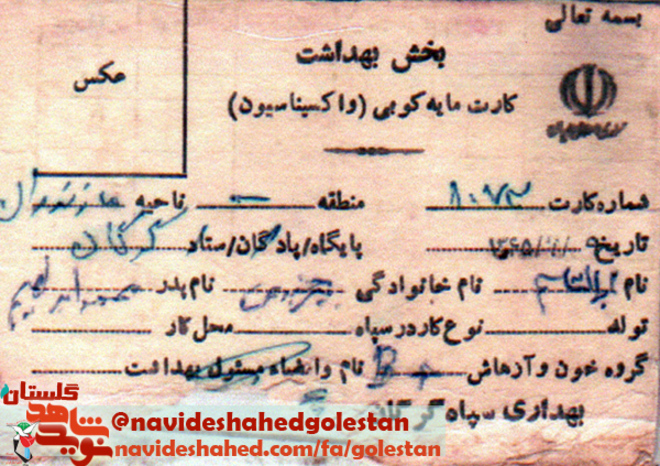 بسمه تعالی
بخش بهداشت
عکس
کارت مایه کوبی (واکسیناسیون)
شماره کارت ۸۰۷۳ منطقه - ناحیه مازندران
تاریخ ۱۳۶۵/ پایگاه/پادگان/ستاد گرگان
نام ابوالقاسم نام خانوادگی نام پدر محمد ابراهیم
تولد نوع کار در سپاه محل کار
گروه خون و آرهاش B+ نام وامضاء مسئول بهداشت
بهداری سپاه گرگان
گلستان
نوید شاهد
@navideshahedgolestan
navideshahed.com/fa/golestan